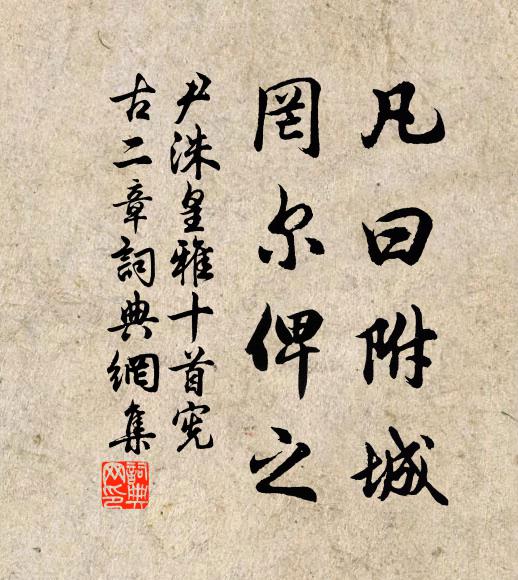 凡曰附城
罔尔俾之
尹洙皇雅十首宪
古二章詞典網集
詞典网印